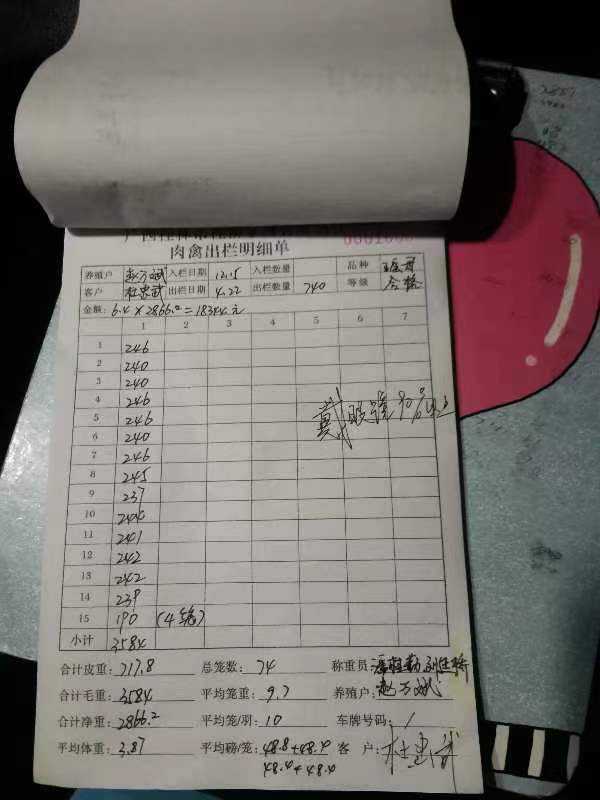 肉禽出栏明细单
养殖户 赵万斌 入栏日期 12.15 入栏数量 品种
客户 杜忠武 出栏日期 4.22 出栏数量 740 等级 合格
金额: 6.4×2866.2=18344元
1 2 3 4 5 6 7
1 246
2 240
3 240
4 246
5 246 戴眼镜90%以上
6 240
7 246
8 245
9 237
10 244
11 241
12 242
13 242
14 239
15 190 (4笼)
小计 3584
合计皮重: 717.8 总笼数: 74 称重员:
合计毛重: 3584 平均笼重: 9.7 养殖户: 赵万斌
合计净重: 2866.2 平均笼/羽: 10 车牌号码: /
平均体重: 3.87 平均磅/笼: 48.8+48.4 客户: 杜忠武
48.4+48.4